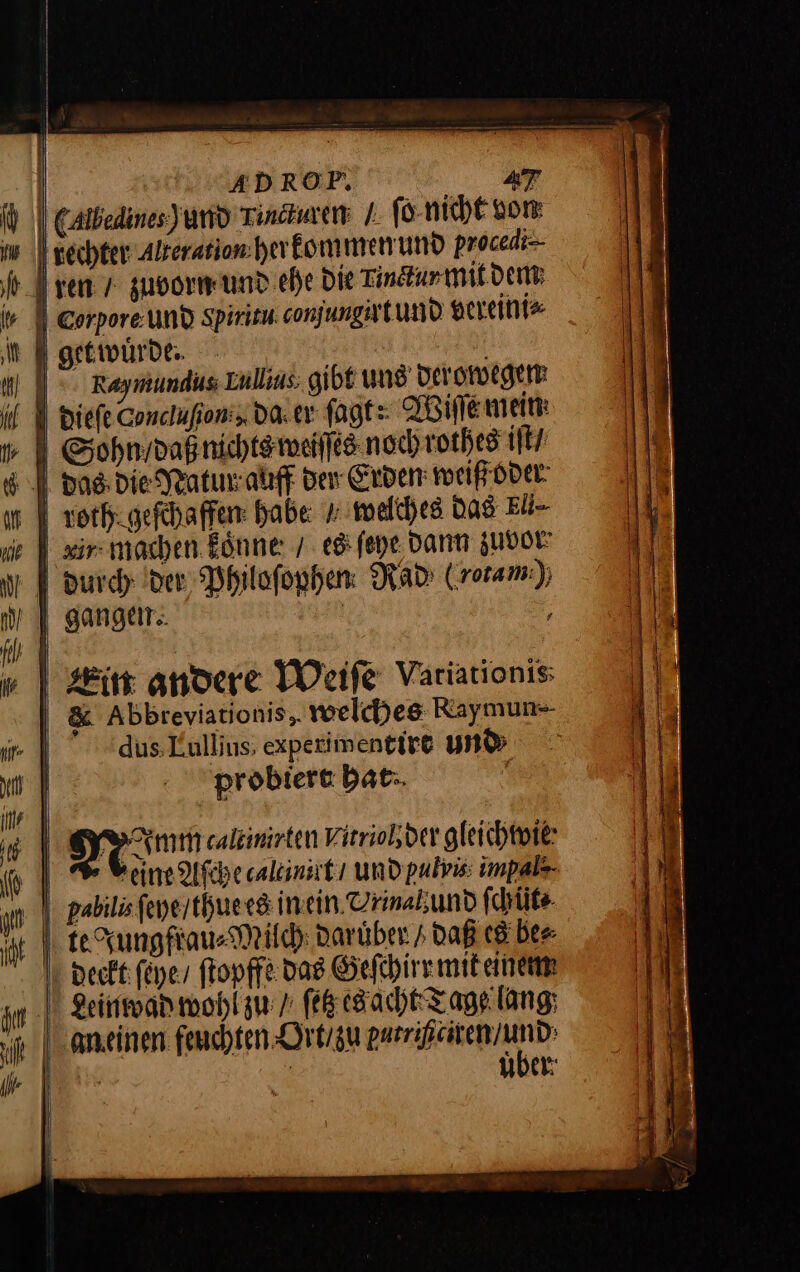 ADROP. 47
(Albedines) und Tincturen / ſo nicht von
rechter Alteration herkommen und procedi-
ren / zuvorn und ehe die Tinctur mit dem
Corpore und Spiritu conjungirt und vereini-
get würde.
Raymundus Lullius gibt uns derowegen
dieſe Concluſion, da er ſagt: Wiſſe mein
Sohn/daß nichts weiſſes noch rothes iſt/
das die Natur auff der Erden weiß oder
roth geſchaffen habe / welches das Eli-
xir machen könne / es ſeye dann zuvor
durch der Philoſophen Rad (rotam)
gangen.
Ein andere Weiſe Variationis
& Abbreviationis, welches Raymun-
dus Lullius experimentirt und
probiert hat.
Nimm calcinirten Vitriol, der gleichwie
eine Aſche calcinirt / und pulvis impal-
pabilis ſeye/thue es in ein Urinal, und ſchüt-
te Jungfrau-Milch darüber / daß es be-
deckt ſeye / ſtopffe das Geſchirr mit einem
Leinwad wohl zu / ſetz es acht Tage lang
an einen feuchten Ort/zu putrificiren/und
über